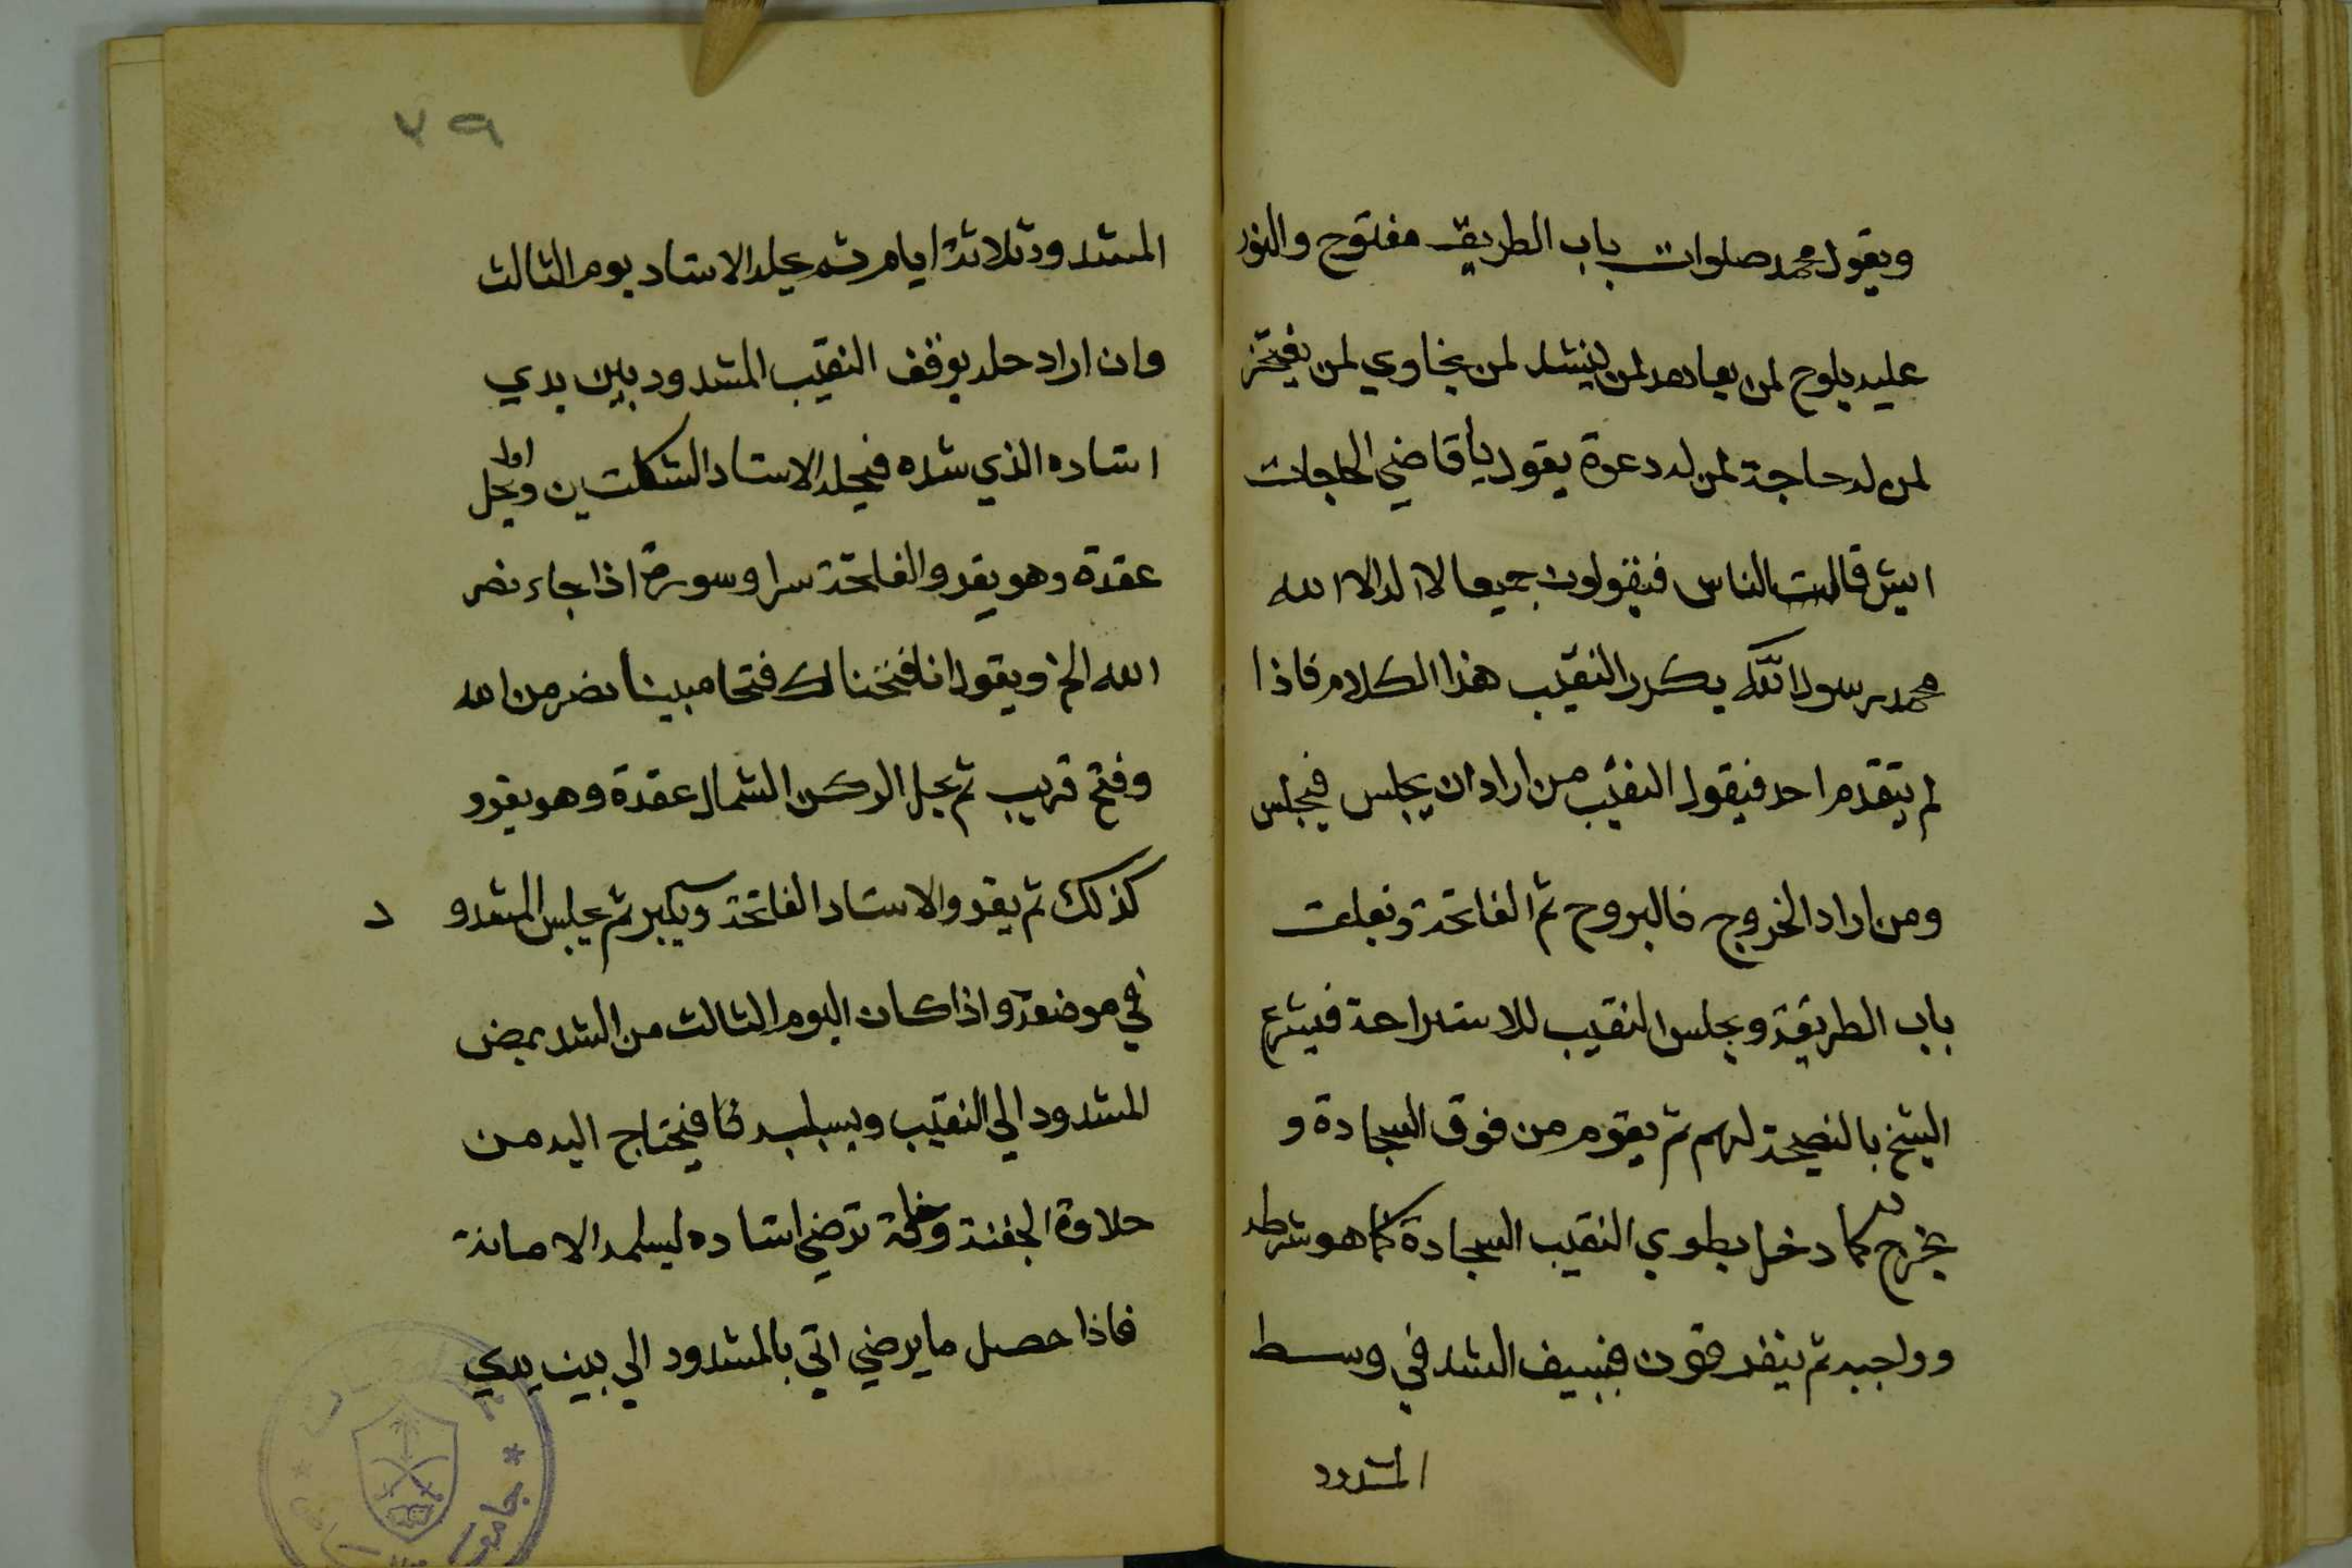 ويقول محمد صلوات باب الطريق مفتوح والنور
عليه يلوح لمن يعاهد لمن ينشد لمن يخاوي لمن يفتخر
لمن له حاجة لمن له دعوة يقول يا قاضي الحاجات
ايش قالت الناس فيقولون جميعا لا اله الا الله
محمد رسول الله يكرر النقيب هذا الكلام فاذا
لم يتقدم احد فيقول النقيب من اراد ان يجلس فيجلس
ومن اراد الخروج فاليروح ثم الفاتحة وتغلق
باب الطريقة ويجلس النقيب للاستراحة فيشرع
الشيخ بالنصيحة لهم ثم يقوم من فوق السجادة و
يخرج كما دخل يطوي النقيب السجادة كما هو شرطه
وواجبه ثم يتفرقون فيبيت الشد في وسط
المشدود
٧٩
المشدود ثلاثة ايام ثم يحله الاستاد يوم الثالث
وان اراد حله يوقف النقيب المشدود بين يدي
استاده الذي شده فيحله الاستاد الشكلتين اولا ويحل
عقدة وهو يقرو الفاتحة سرا وسورة اذا جاء نصر
الله الخ ويقول انا فتحنا لك فتحا مبينا نصر من الله
وفتح قريب ثم يحل الركن الشمال عقدة وهو يقرو
كذلك ثم يقرو الاستاد الفاتحة ويكبر ثم يجلس المشدود
في موضعه واذا كان اليوم الثالث من الشد يمض
المشدود الي النقيب ويسلبه فيحتاج اليه من
حلاوة الجفنة ترضي استاده ليسلمه الامانة
فاذا حصل ما يرضي اتي بالمشدود الي بين يدي
جامعة